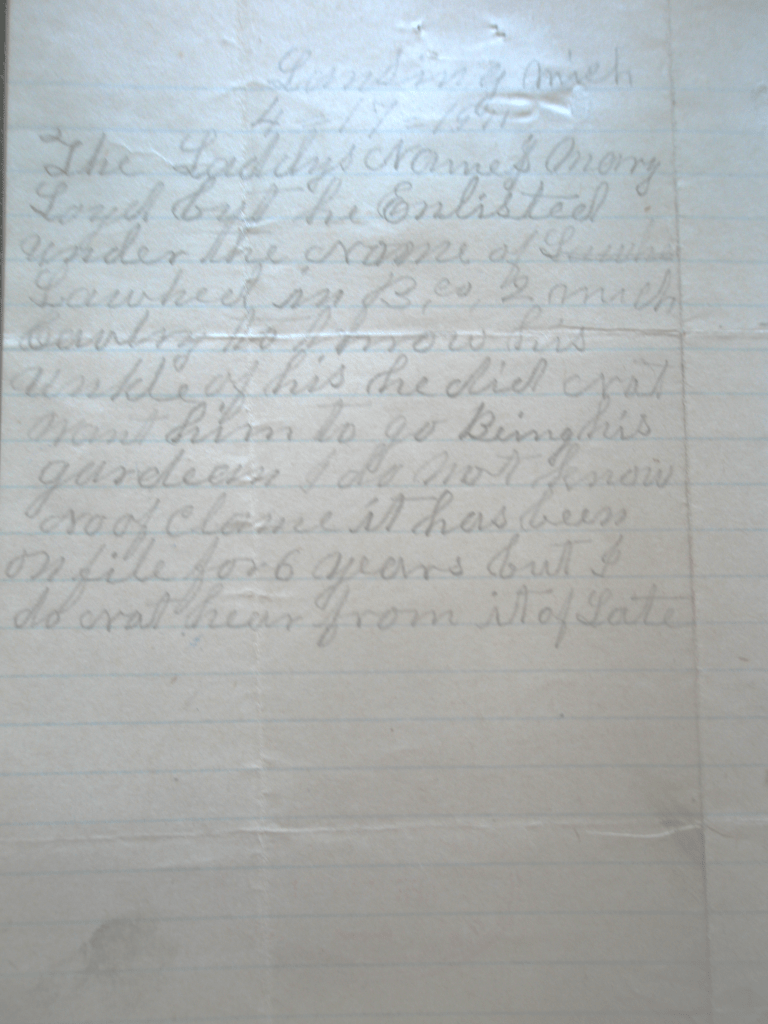 Lansing mich
4 - 17 - 1891
The Laddys Name is Mary
Loyd but he Enlisted
under the Name of
Lawhed in B, co, 2 mich
Cavlry to know his
unkle of his he did not
want him to go Being his
gurdean I do Not know
no of Clame it has been
on file for 6 years but I
do not hear from it of Late